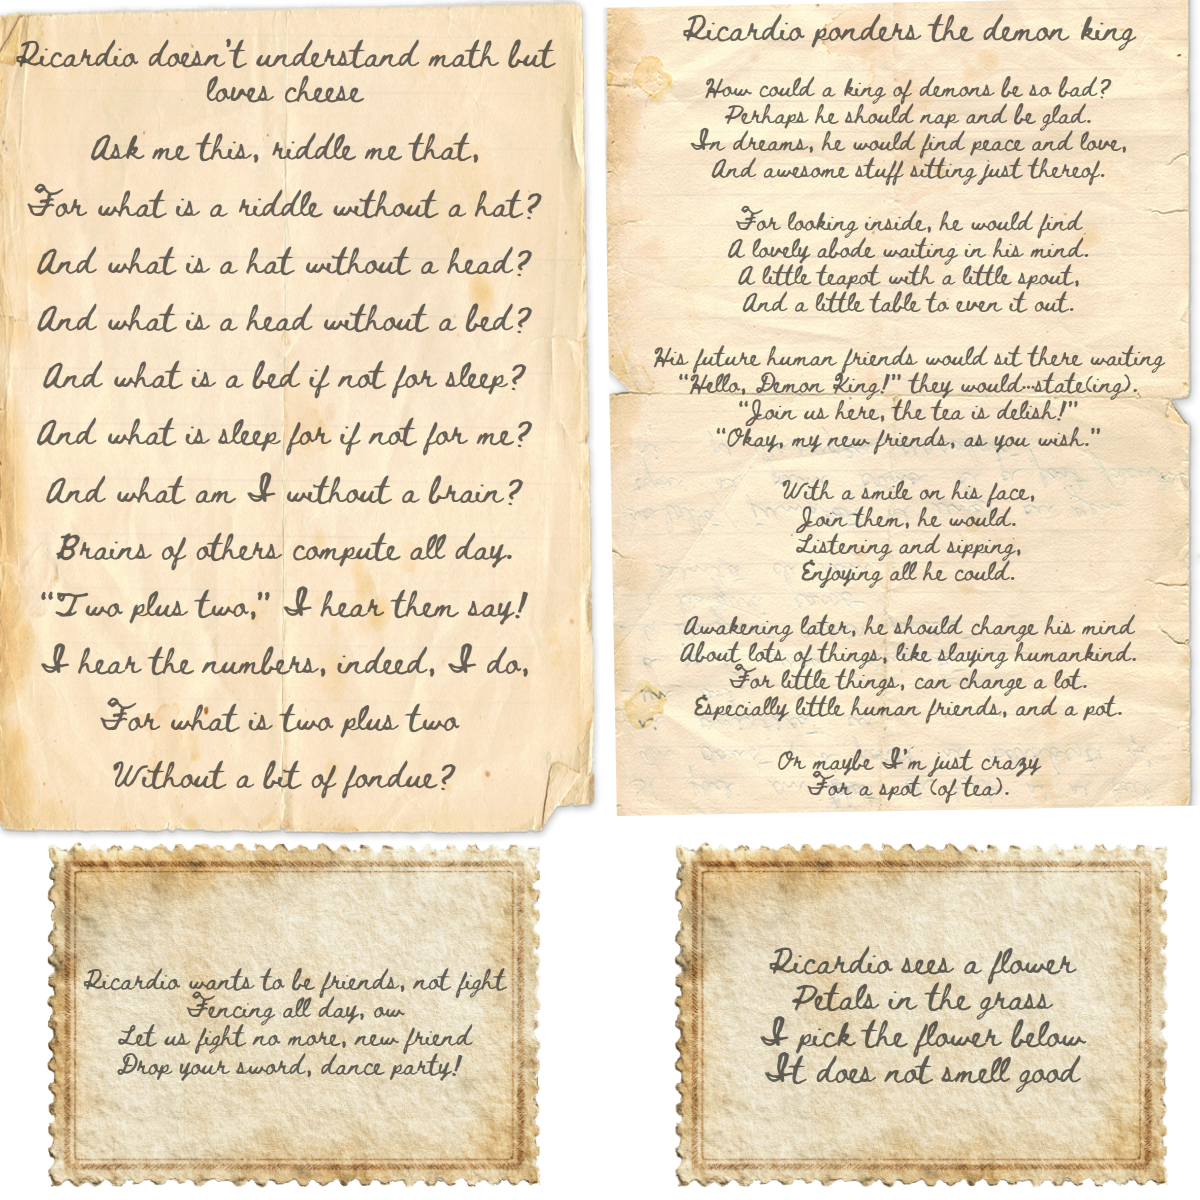 Ricardio doesn't understand math but
loves cheese
Ask me this, riddle me that,
For what is a riddle without a hat?
And what is a hat without a head?
And what is a head without a bed?
And what is a bed if not for sleep?
And what is sleep for if not for me?
And what am I without a brain?
Brains of others compute all day.
"Two plus two," I hear them say!
I hear the numbers, indeed, I do,
For what is two plus two
Without a bit of fondue?
Ricardio ponders the demon king
How could a king of demons be so bad?
Perhaps he should nap and be glad.
In dreams, he would find peace and love,
And awesome stuff sitting just thereof.
For looking inside, he would find
A lovely abode waiting in his mind.
A little teapot with a little spout,
And a little table to even it out.
His future human friends would sit there waiting
"Hello, Demon King!" they would…state(ing).
"Join us here, the tea is delish!"
"Okay, my new friends, as you wish."
With a smile on his face,
Join them, he would.
Listening and sipping,
Enjoying all he could.
Awakening later, he should change his mind
About lots of things, like slaying humankind.
For little things, can change a lot.
Especially little human friends, and a pot.
Or maybe I'm just crazy
For a spot (of tea).
Ricardio wants to be friends, not fight
Fencing all day, ow
Let us fight no more, new friend
Drop your sword, dance party!
Ricardio sees a flower
Petals in the grass
I pick the flower below
It does not smell good